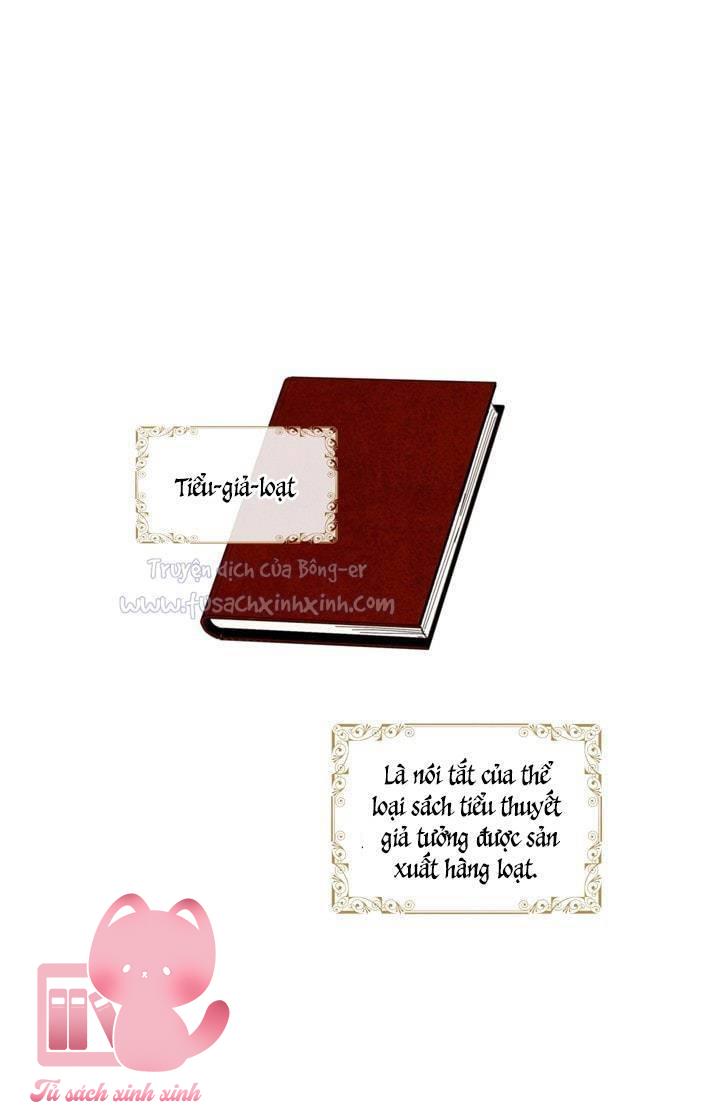 Tiểu-giả-loạt
Truyện dịch của Bông-er
www.tusachxinhxinh.com
Là nói tắt của thể
loại sách tiểu thuyết
giả tưởng được sản
xuất hàng loạt.
Tủ sách xinh xinh